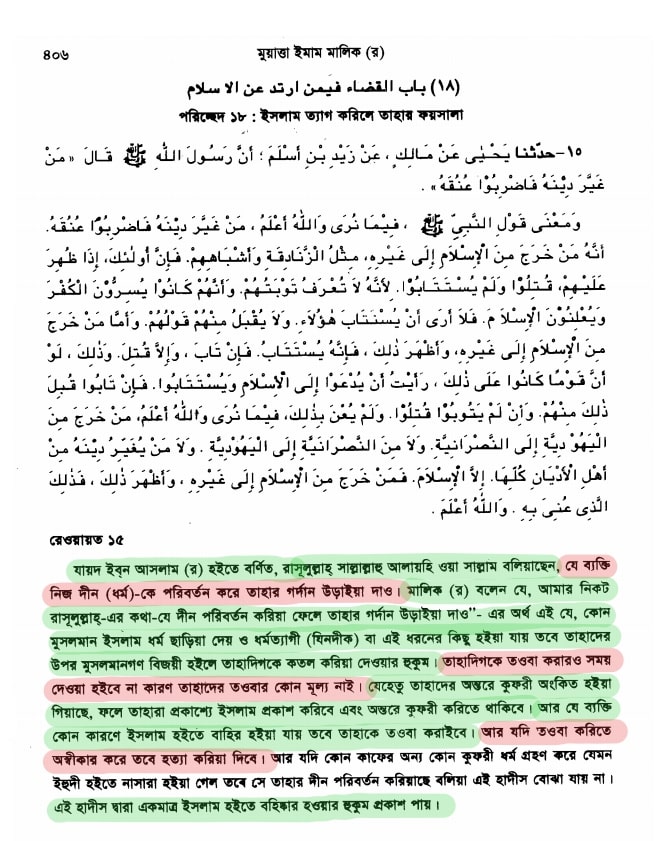 ৪০৬ মুয়াত্তা ইমাম মালিক (র)
(١٨) باب القضاء فيمن ارتد عن الاسلام
পরিচ্ছেদ ১৮ : ইসলাম ত্যাগ করিলে তাহার ফয়সালা
١٥-حدّثنا يَحْيٰى عَنْ مَالِكٍ ، عَنْ زَيْدِ بْنِ أَسْلَمَ ؛ أَنَّ رَسُوْلَ اللّٰهِ ﷺ قَالَ « مَنْ
غَيَّرَ دِيْنَهُ فَاضْرِبُوْا عُنُقَهُ » .
وَمَعْنَى قَوْلِ النَّبِيِّ ﷺ ، فِيْمَا نُرَى وَاللّٰهُ أَعْلَمُ ، مَنْ غَيَّرَ دِيْنَهُ فَاضْرِبُوْا عُنُقَهُ.
أَنَّهُ مَنْ خَرَجَ مِنَ الْإِسْلَامِ إِلَى غَيْرِهِ، مِثْلُ الزَّنَادِقَةِ وَأَشْبَاهِهِمْ. فَإِنَّ أُولٰئِكَ، إِذَا ظُهِرَ
عَلَيْهِمْ، قُتِلُوْا وَلَمْ يُسْتَتَابُوْا. لِأَنَّهُ لَا تُعْرَفُ تَوْبَتُهُمْ. وَأَنَّهُمْ كَانُوْا يُسِرُّوْنَ الْكُفْرَ
وَيُعْلِنُوْنَ الْإِسْلَا مَ. فَلَا أَرَى أَنْ يُسْتَتَابَ هٰؤُلَاءِ. وَلَا يُقْبَلُ مِنْهُمْ قَوْلُهُمْ. وَأَمَّا مَنْ خَرَجَ
مِنَ الْإِسْلَامِ إِلَى غَيْرِهِ، وَأَظْهَرَ ذٰلِكَ ، فَإِنَّهُ يُسْتَتَابُ. فَإِنْ تَابَ ، وَإِلَّا قُتِلَ. وَذٰلِكَ ، لَوْ
أَنَّ قَوْمًا كَانُوْا عَلَى ذٰلِكَ ، رَأَيْتُ أَنْ يُدْعَوْا إِلَى الْاِسْلَامِ وَيُسْتَتَابُوا. فَإِنْ تَابُوا قُبِلَ
ذٰلِكَ مِنْهُمْ. وَإِنْ لَمْ يَتُوبُوْا قُتِلُوْا. وَلَمْ يَعْنِ بِذٰلِكَ، فِيْمَا نُرَى وَاللّٰهُ أَعْلَمُ، مَنْ خَرَجَ مِنَ
الْيَهُوْ دِيَّةِ إِلَى النَّصْرَانِيَّةِ. وَلَا مِنَ النَّصْرَانِيَّةِ إِلَى الْيَهُوْدِيَّةِ . وَلَا مَنْ يُغَيِّرُ دِيْنَهُ مِنْ
أَهْلِ الْأَدْيَانِ كُلِّهَا. إِلاَّ الْإِسْلَامَ. فَمَنْ خَرَجَ مِنَ الْإِسْلَامِ إِلَى غَيْرِهِ ، وَأَظْهَرَ ذٰلِكَ ، فَذٰلِكَ
الَّذِى عُنِىَ بِهِ . وَاللّٰهُ أَعْلَمُ .
রেওয়ায়ত ১৫
যায়দ ইব্‌ন আসলাম (র) হইতে বর্ণিত, রাসূলুল্লাহ্ সাল্লাল্লাহু আলায়হি ওয়া সাল্লাম বলিয়াছেন, যে ব্যক্তি
নিজ দীন (ধর্ম)-কে পরিবর্তন করে তাহার গর্দান উড়াইয়া দাও। মালিক (র) বলেন যে, আমার নিকট
রাসূলুল্লাহ্-এর কথা-যে দীন পরিবর্তন করিয়া ফেলে তাহার গর্দান উড়াইয়া দাও”- এর অর্থ এই যে, কোন
মুসলমান ইসলাম ধর্ম ছাড়িয়া দেয় ও ধর্মত্যাগী (যিনদীক) বা এই ধরনের কিছু হইয়া যায় তবে তাহাদের
উপর মুসলমানগণ বিজয়ী হইলে তাহাদিগকে কতল করিয়া দেওয়ার হুকুম। তাহাদিগকে তওবা করারও সময়
দেওয়া হইবে না কারণ তাহাদের তওবার কোন মূল্য নাই। যেহেতু তাহাদের অন্তরে কুফরী অংকিত হইয়া
গিয়াছে, ফলে তাহারা প্রকাশ্যে ইসলাম প্রকাশ করিবে এবং অন্তরে কুফরী করিতে থাকিবে। আর যে ব্যক্তি
কোন কারণে ইসলাম হইতে বাহির হইয়া যায় তবে তাহাকে তওবা করাইবে। আর যদি তওবা করিতে
অস্বীকার করে তবে হত্যা করিয়া দিবে। আর যদি কোন কাফের অন্য কোন কুফরী ধর্ম গ্রহণ করে যেমন
ইহুদী হইতে নাসারা হইয়া গেল তবে সে তাহার দীন পরিবর্তন করিয়াছে বলিয়া এই হাদীস বোঝা যায় না।
এই হাদীস দ্বারা একমাত্র ইসলাম হইতে বহিষ্কার হওয়ার হুকুম প্রকাশ পায়।